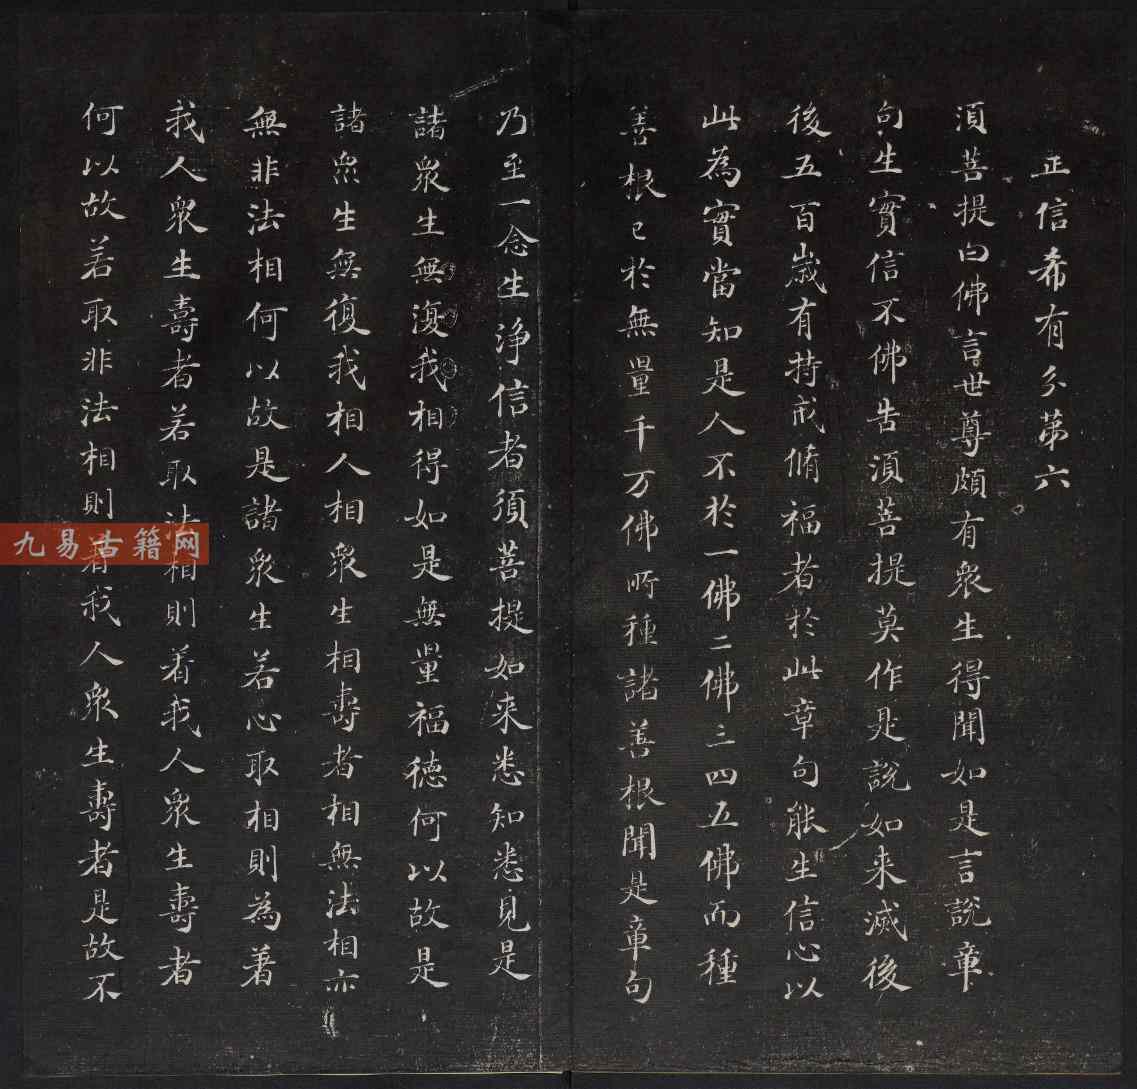 正信希有分第六
湏菩提白佛言世尊頗有衆生得聞如是言說章
句生實信不佛告湏菩提莫作是說如来滅後
後五百歲有持戒脩福者於此章句能生信心以
此為實當知是人不於一佛二佛三四五佛而種
善根已於無量千万佛所種諸善根聞是章句
乃至一念生淨信者須菩提如来悉知悉見是
諸衆生無復我相得如是無量福德何以故是
諸衆生無復我相人相衆生相壽者相無法相亦
無非法相何以故是諸衆生若心取相則為著
我人衆生壽者若取法相則着我人衆生壽者
何以故若取非法相則着我人衆生壽者是故不
九易古籍网